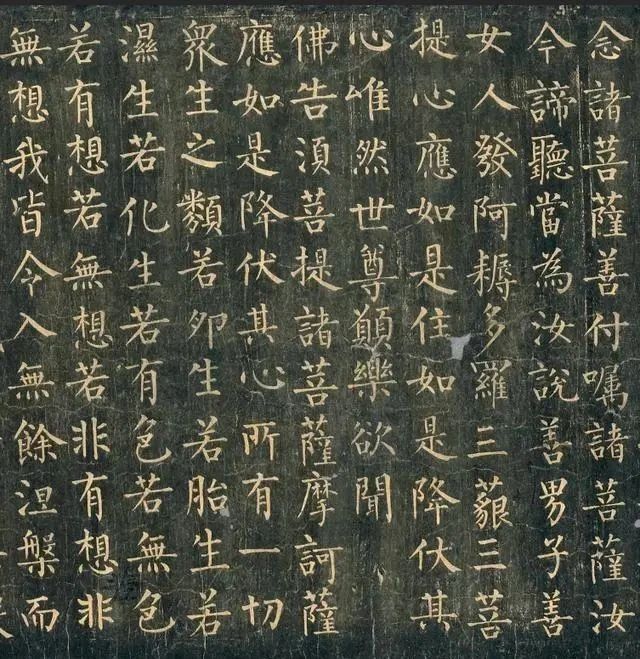 念諸菩薩善付囑諸菩薩汝
今諦聽當為汝說善男子善
女人發阿耨多羅三藐三菩
提心應如是住如是降伏其
心唯然世尊願樂欲聞
佛告須菩提諸菩薩摩訶薩
應如是降伏其心所有一切
衆生之類若卵生若胎生若
濕生若化生若有色若無色
若有想若無想若非有想非
無想我皆令入無餘涅槃而